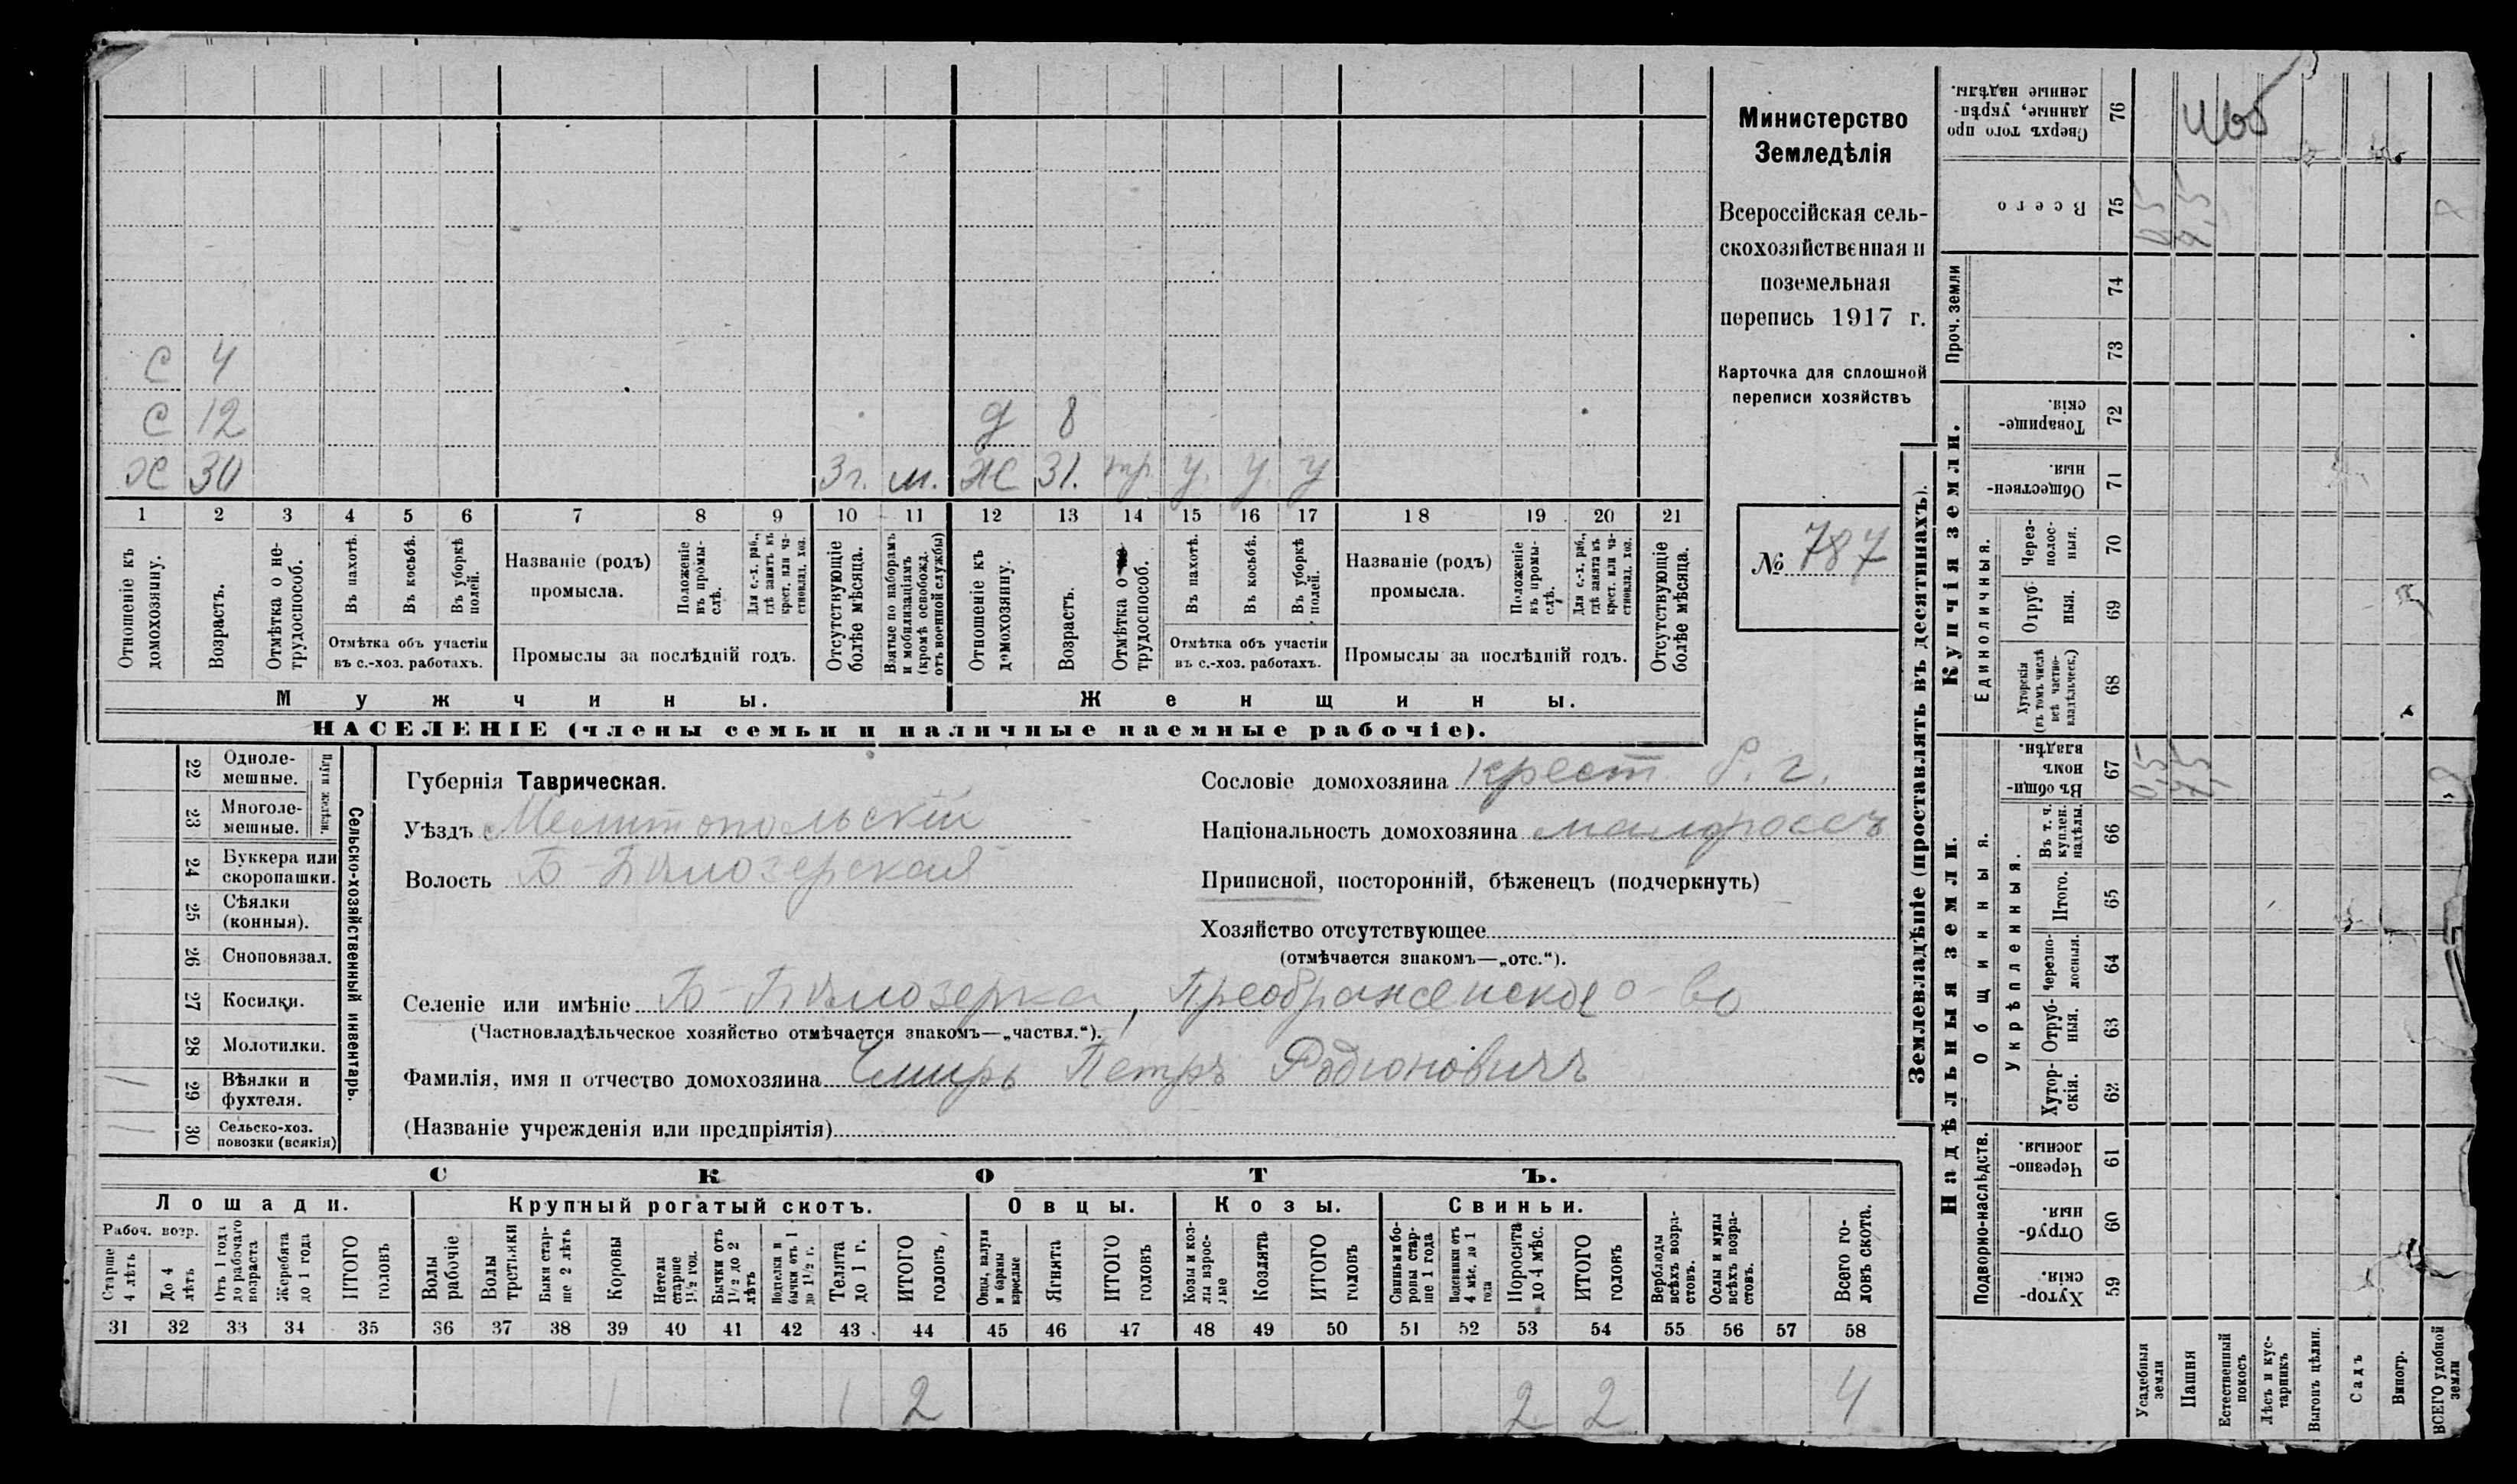 Министерство
Земледѣлія
Всероссійская сель-
скохозяйственная и
поземельная
перепись 1917 г.
Карточка для сплошной
переписи хозяйствъ
№ 787
С 4
С 12 д 8
Х 30 3 г. м. Ж 31. тр. у. у. у
1 2 3 4 5 6 7 8 9 10 11 12 13 14 15 16 17 18 19 20 21
Отношеніе къ домохозяину.
Возрастъ.
Отмѣтка о не-трудоспособ.
Въ пахотѣ.
Въ косьбѣ.
Въ уборкѣ полей.
Отмѣтка объ участіи
въ с.-хоз. работахъ.
Названіе (родъ)
промысла.
Положеніе въ промы-слѣ.
Для с.-х. раб., гдѣ занятъ въ крест. или ча-стновлад. хоз.
Промыслы за послѣдній годъ.
Отсутствующіе болѣе мѣсяца.
Взятые по наборамъ и мобилизаціямъ (кромѣ освобожд. отъ военной службы)
Отношеніе къ домохозяину.
Возрастъ.
Отмѣтка о трудоспособ.
Въ пахотѣ.
Въ косьбѣ.
Въ уборкѣ полей.
Отмѣтка объ участіи
въ с.-хоз. работахъ.
Названіе (родъ)
промысла.
Положеніе въ промы-слѣ.
Для с.-х. раб., гдѣ занята въ крест. или ча-стновлад. хоз.
Промыслы за послѣдній годъ.
Отсутствующіе болѣе мѣсяца.
Мужчины. Женщины.
НАСЕЛЕНІЕ (члены семьи и наличные наемные рабочіе).
Сельско-хозяйственный инвентарь.
Плуги желѣзн.
22 Одноле-мешные.
23 Многоле-мешные.
24 Буккера или скоропашки.
25 Сѣялки (конныя).
26 Сноповязал.
27 Косилки.
28 Молотилки.
1 29 Вѣялки и фухтеля.
1 30 Сельско-хоз. повозки (всякія)
Губернія Таврическая.
Уѣздъ Мелитопольскій
Волость Б-Бѣлозерская
Сословіе домохозяина крест.
Національность домохозяина малороссъ
Приписной, посторонній, бѣженецъ (подчеркнуть)
Хозяйство отсутствующее
(отмѣчается знакомъ—„отс.“).
Селеніе или имѣніе Б-Бѣлозерка, Преображенское о-во
(Частновладѣльческое хозяйство отмѣчается знакомъ—„частвл.“).
Фамилія, имя и отчество домохозяина Чмирь Петръ Родіоновичъ
(Названіе учрежденія или предпріятія)
СКОТЪ.
Лошади. Крупный рогатый скотъ. Овцы. Козы. Свиньи.
Рабоч. возр.
Старше 4 лѣтъ
До 4 лѣтъ
Отъ 1 года до рабочаго возраста
Жеребята до 1 года
ИТОГО головъ
Волы рабочіе
Волы гостьяки
Быки стар-ше 2 лѣтъ
Коровы
Нетели старше 1½ год.
Бычки отъ 1½ до 2 лѣтъ
Подтелки и бычки отъ 1 до 1½ г.
Телята до 1 г.
ИТОГО головъ
Овцы, валухи и бараны взрослые
Ягнята
ИТОГО головъ
Козы и коз-лы взрос-лые
Козлята
ИТОГО головъ
Свиньи и бо-ровы стар-ше 1 года
Подсвинки отъ 4 мѣс. до 1 года
Поросята до 4 мѣс.
ИТОГО головъ
Верблюды всѣхъ возра-стовъ.
Ослы и мулы всѣхъ возра-стовъ.
Всего го-ловъ скота.
31 32 33 34 35 36 37 38 39 40 41 42 43 44 45 46 47 48 49 50 51 52 53 54 55 56 57 58
1 1 2 2 2 4
Землевладѣніе (проставлять въ десятинахъ).
Надѣльныя земли.
Купчія земли.
Проч. земли
Общинныя.
Укрѣпленныя.
Подворно-наслѣдств.
Единоличныя.
Сверхъ того про данные, укрѣп-ленные надѣлы. 76
Всего 75
74
73
Товарище-скія. 72
Обществен-ныя. 71
Через-полос-ныя. 70
Отруб-ныя. 69
Хуторскія (въ томъ числѣ всѣ частно-владѣльческ.) 68
Въ общи-номъ владѣн. 67
Въ т. ч. куплен. надѣлы. 66
Итого. 65
Черезпо-лосныя. 64
Отруб-ныя. 63
Хутор-скія. 62
Черезпо-лосныя. 61
Отруб-ныя. 60
Хутор-скія. 59
Усадебныя земли
Пашня
Естественный покосъ
Лѣсъ и кус-тарникъ
Выгонъ цѣлин.
Садъ
Виногр.
ВСЕГО удобной земли